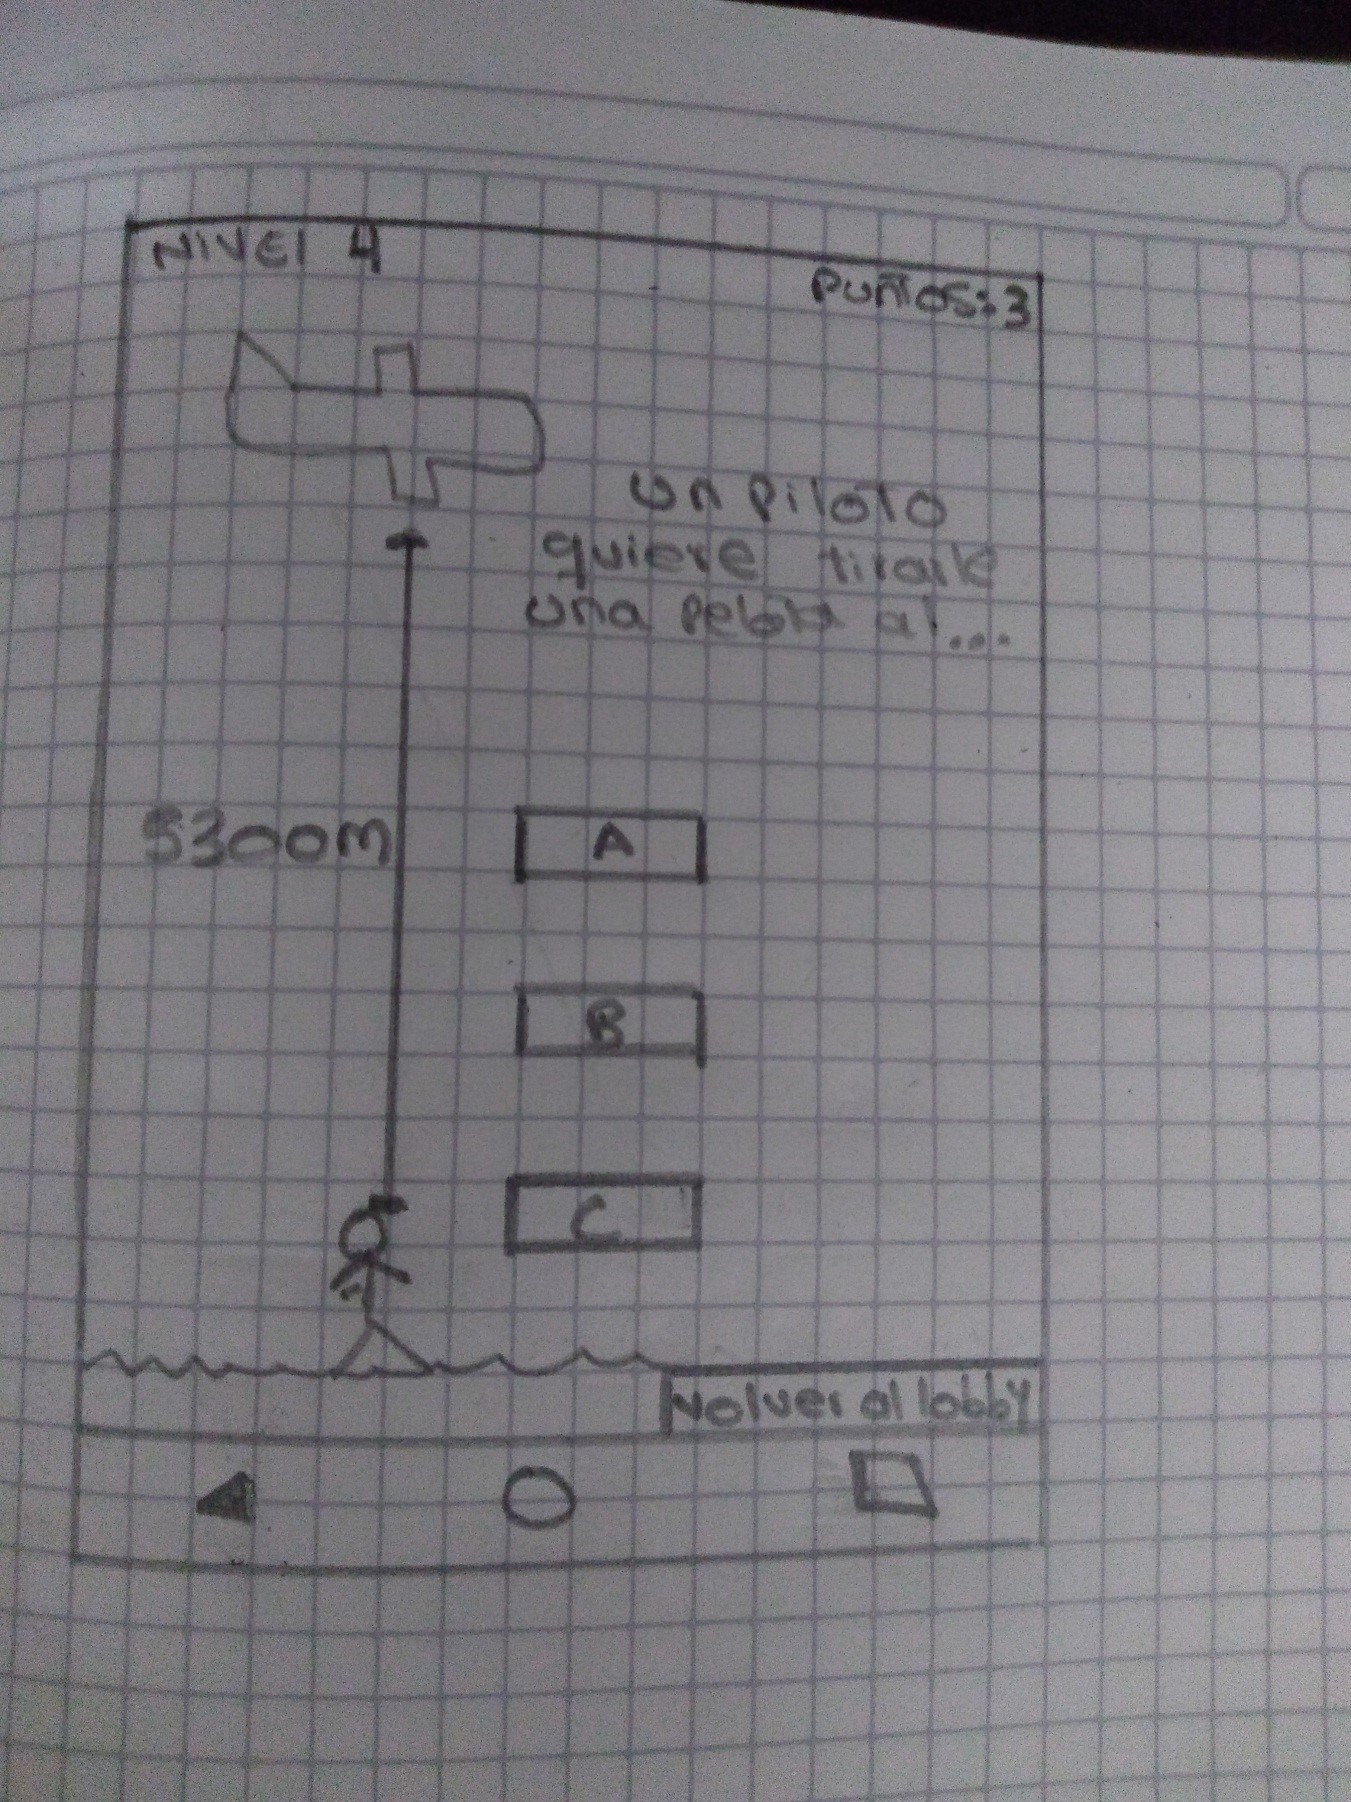 NIVEl 4
Puntos: 3
un piloto
quiere tirarle
una pelota al...
5300m
A
B
C
Volver al lobby